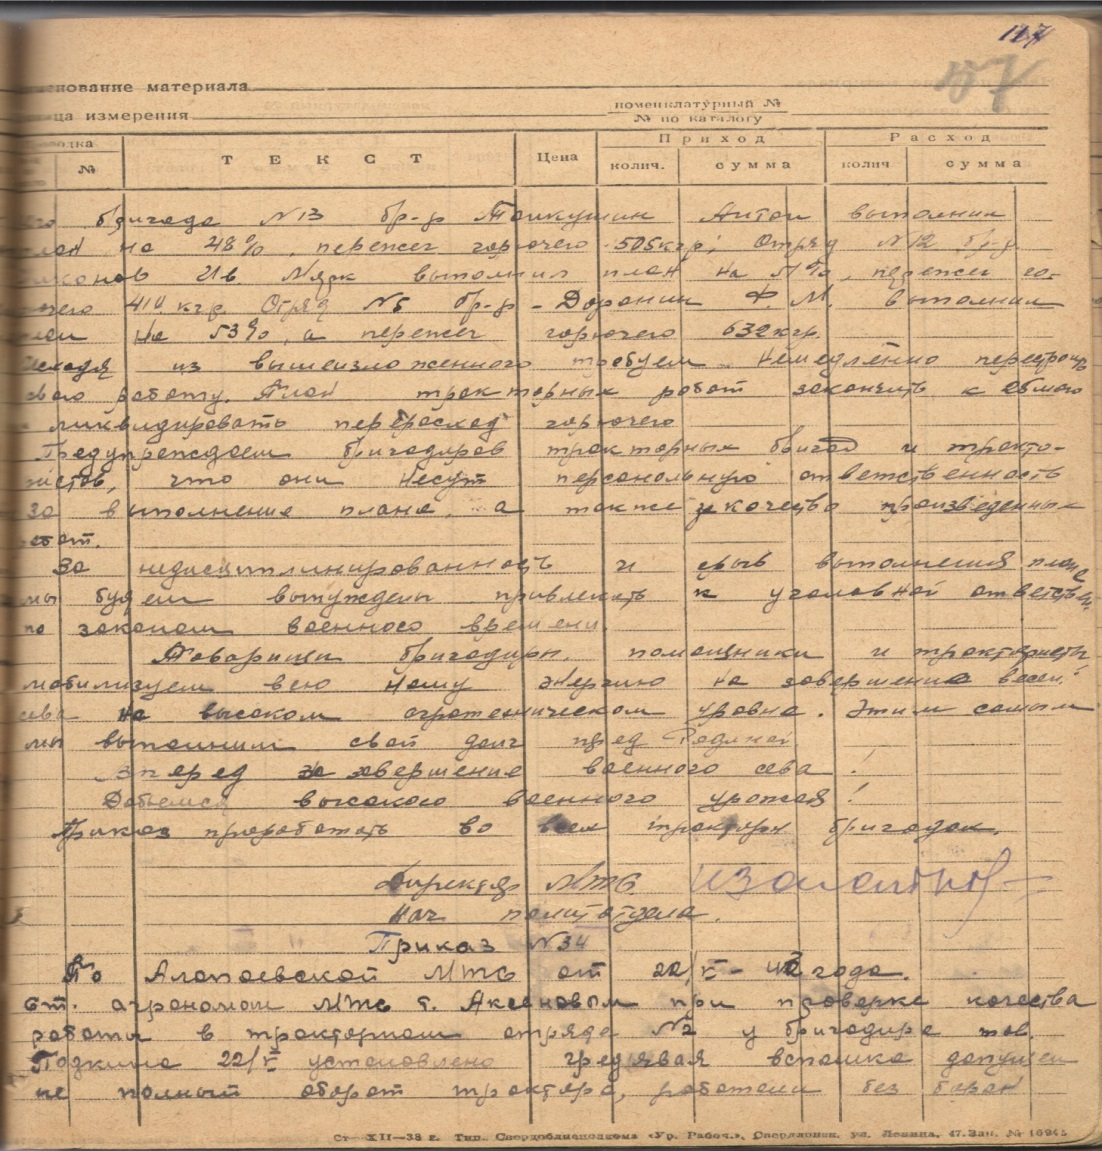 117
157
нование материала
ца измерения
номенклатурный №
№ по каталогу
одка № ТЕКСТ Цена Приход колич. сумма Расход колич сумма
бригада N13 бр-р Антон выполнил
на 48%, пережег горючего 505 кгр; Отряд N12 бр-р
выполнил план на 51%, пережег го-
рючего кгр. Отряд N5 бр-р - Доронин Ф. М. выполнил
на 53%, а пережег горючего 632 кгр.
исходя из вышеизложенного требуем немедленно перестроить
свою работу. План тракторных работ закончить к
ликвидировать перерасход горючего
Предупреждаем бригадиров тракторных бригад и тракто-
ристов, что они несут персональную ответственность
за выполнение плана, а также и качество произведенных
работ.
За недисциплинированность и срыв выполнения плана
мы будем вынуждены привлекать к уголовной ответствен.
по законам военного времени.
Товарищи бригадиры, помощники и трактористы
мобилизуем всю нашу энергию на завершение весен.
сева на высоком агротехническом уровне. Этим самым
мы выполним свой долг пред Родиной
Вперед за завершение военного сева!
Добьемся высокого военного урожая!
Приказ проработать во всех тракторн бригадах.
Директор МТС
Нач политотдела.
Приказ N34
По Алапаевской МТС от 22/V-43 года.
Ст. агрономом МТС т. Аксеновым при проверке качества
работы в тракторном отряде №2 у бригадира тов.
Подкина 22/V установлено грядевая вспашка допущен
не полный оборот трактора, работали без борон
Ст—XII—38 г. Тип. Свердоблисполкома «Ур. Рабоч.», Свердловск, ул. Ленина, 47. Зак. № 16945